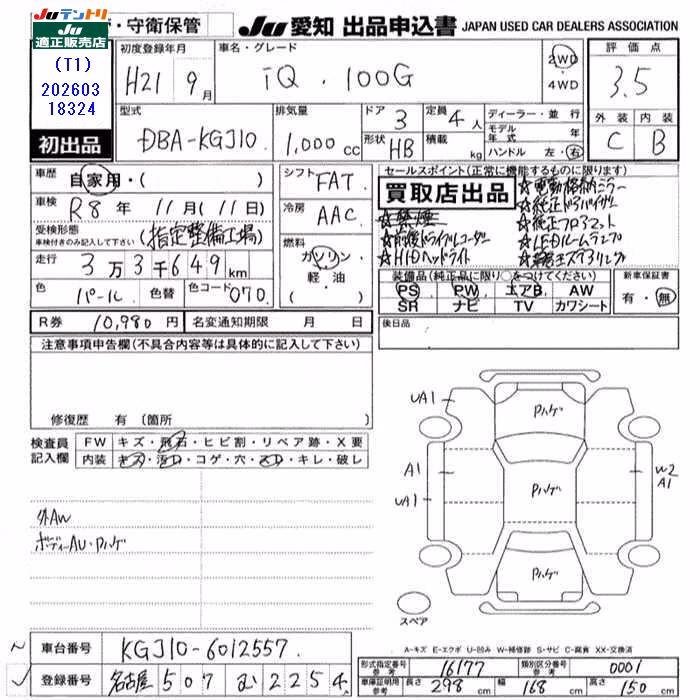 JUテントリ
JU適正販売店
・守衛保管
JU 愛知 出品申込書 JAPAN USED CAR DEALERS ASSOCIATION
(T1)
202603
18324
初出品
初度登録年月 H21 9月
車名・グレード iQ . 100G
2WD ・ 4WD
評価点 3.5
外装 C 内装 B
型式 DBA-KGJ10
排気量 1,000 cc
ドア 3
定員 4人
形状 HB
積載 kg
ディーラー・並行
モデル年式 年
ハンドル 左・右
車歴 自家用・( )
車検 R8年 11月(11日)
受検形態 (指定整備工場)
車検付きのみ記入して下さい
走行 3万3千649km
色 パール 色替 色コード 070
シフト FAT
冷房 AAC
燃料 ガソリン・軽・油 ( )
セールスポイント(正常に機能するものに限ります)
買取店出品
☆電動格納ミラー
☆純正ドラバイザー
☆禁煙 ☆純正フロアマット
☆前後ドライブレコーダー ☆LEDルームランプ
☆HIDヘッドライト ☆革巻きステアリング
装備品(純正品に限り○をつけてください)
PS PW エアB AW
SR ナビ TV カワシート
新車保証書 有・無
R券 10,980円 名変通知期限 月 日
後日品
注意事項申告欄(不具合内容等は具体的に記入して下さい)
修復歴 有 (箇所
検査員記入欄
FW キズ・飛石・ヒビ割・リペア跡・X要
内装 キズ・汚れ・コゲ・穴・スレ・キレ・破レ
外AW
ボディーAU・Pハゲ
UA1
Pハゲ
A1
W2
A1
UA1
Pハゲ
Pハゲ
スペア
A-キズ E-エクボ U-凹み W-補修跡 S-サビ C-腐食 XX-交換済
車台番号 KGJ10-6012557
登録番号 名古屋 507 む 2254
形式指定番号 参考 16177 類別区分番号 参考 0001
車庫証明用 参考 長さ 298 cm 幅 168 cm 高さ 150 cm